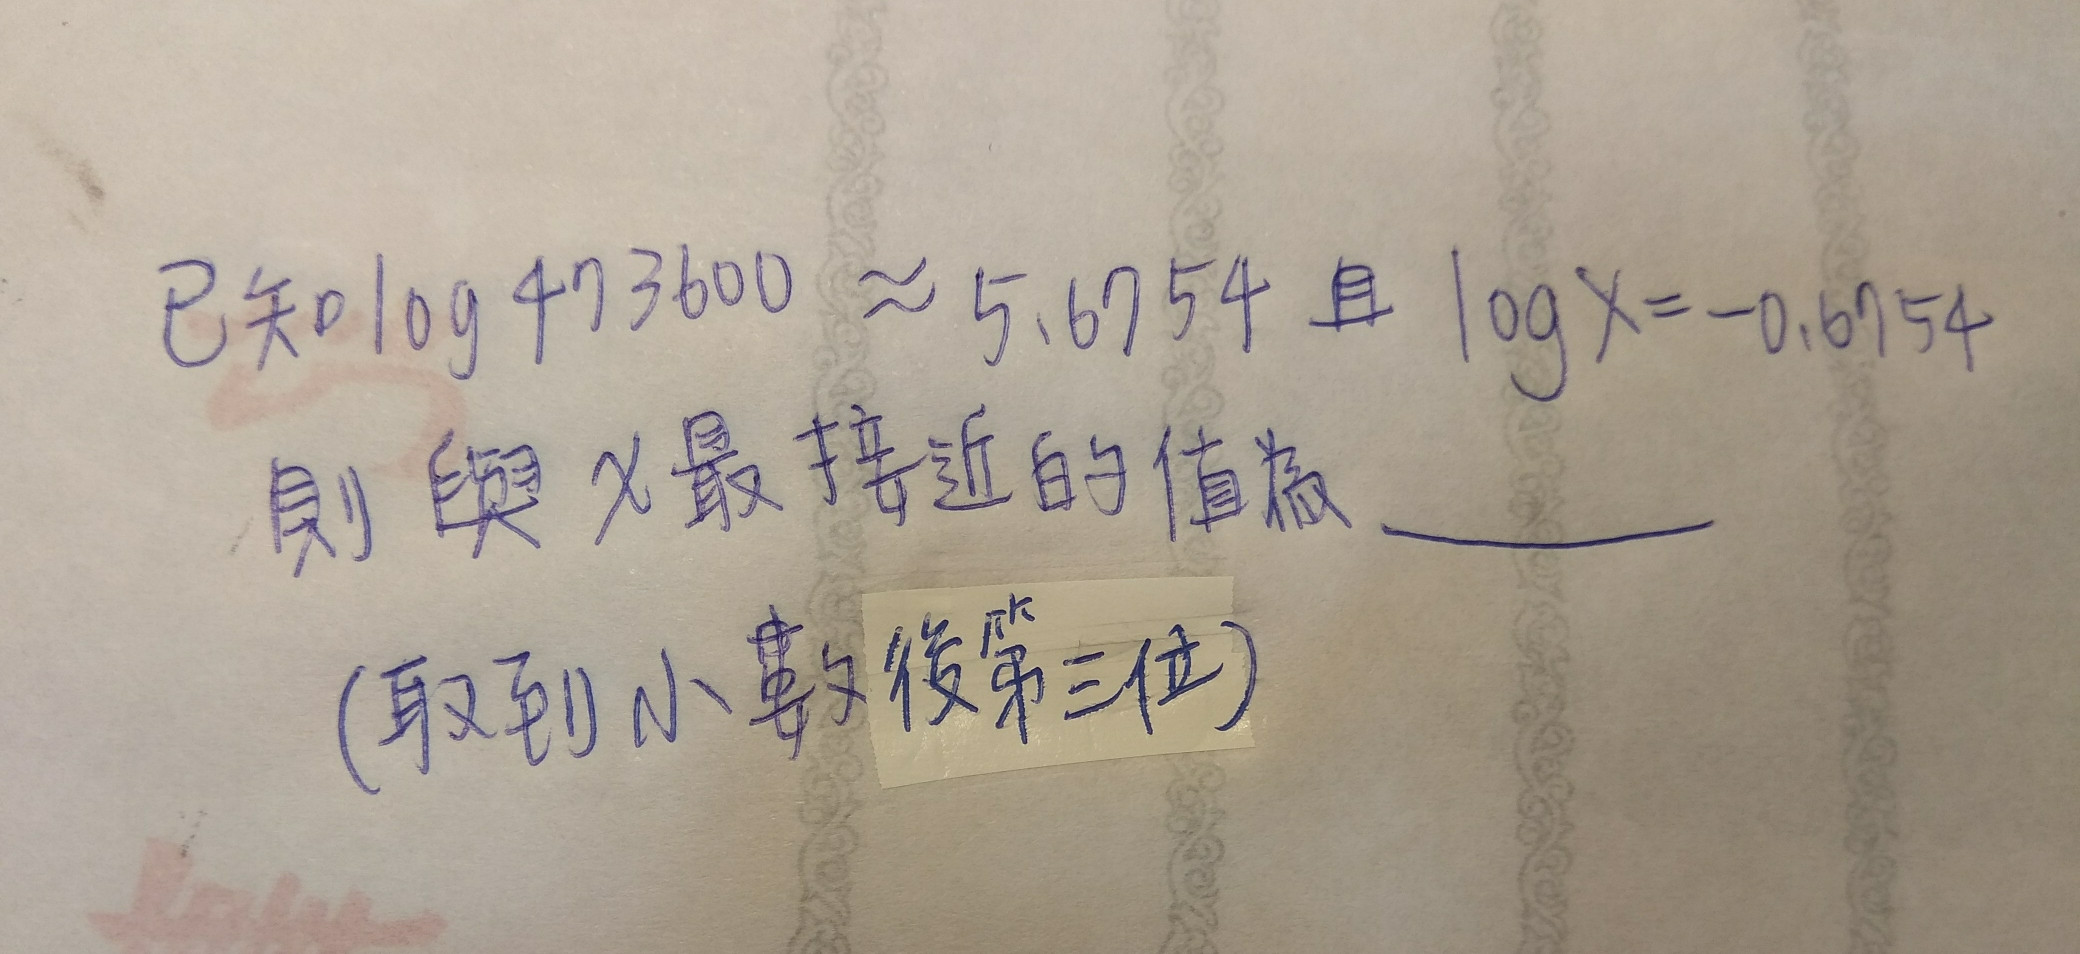 已知log 473600 ≈ 5.6754 且 log x = -0.6754
則與x最接近的值為______
(取到小數後第三位)